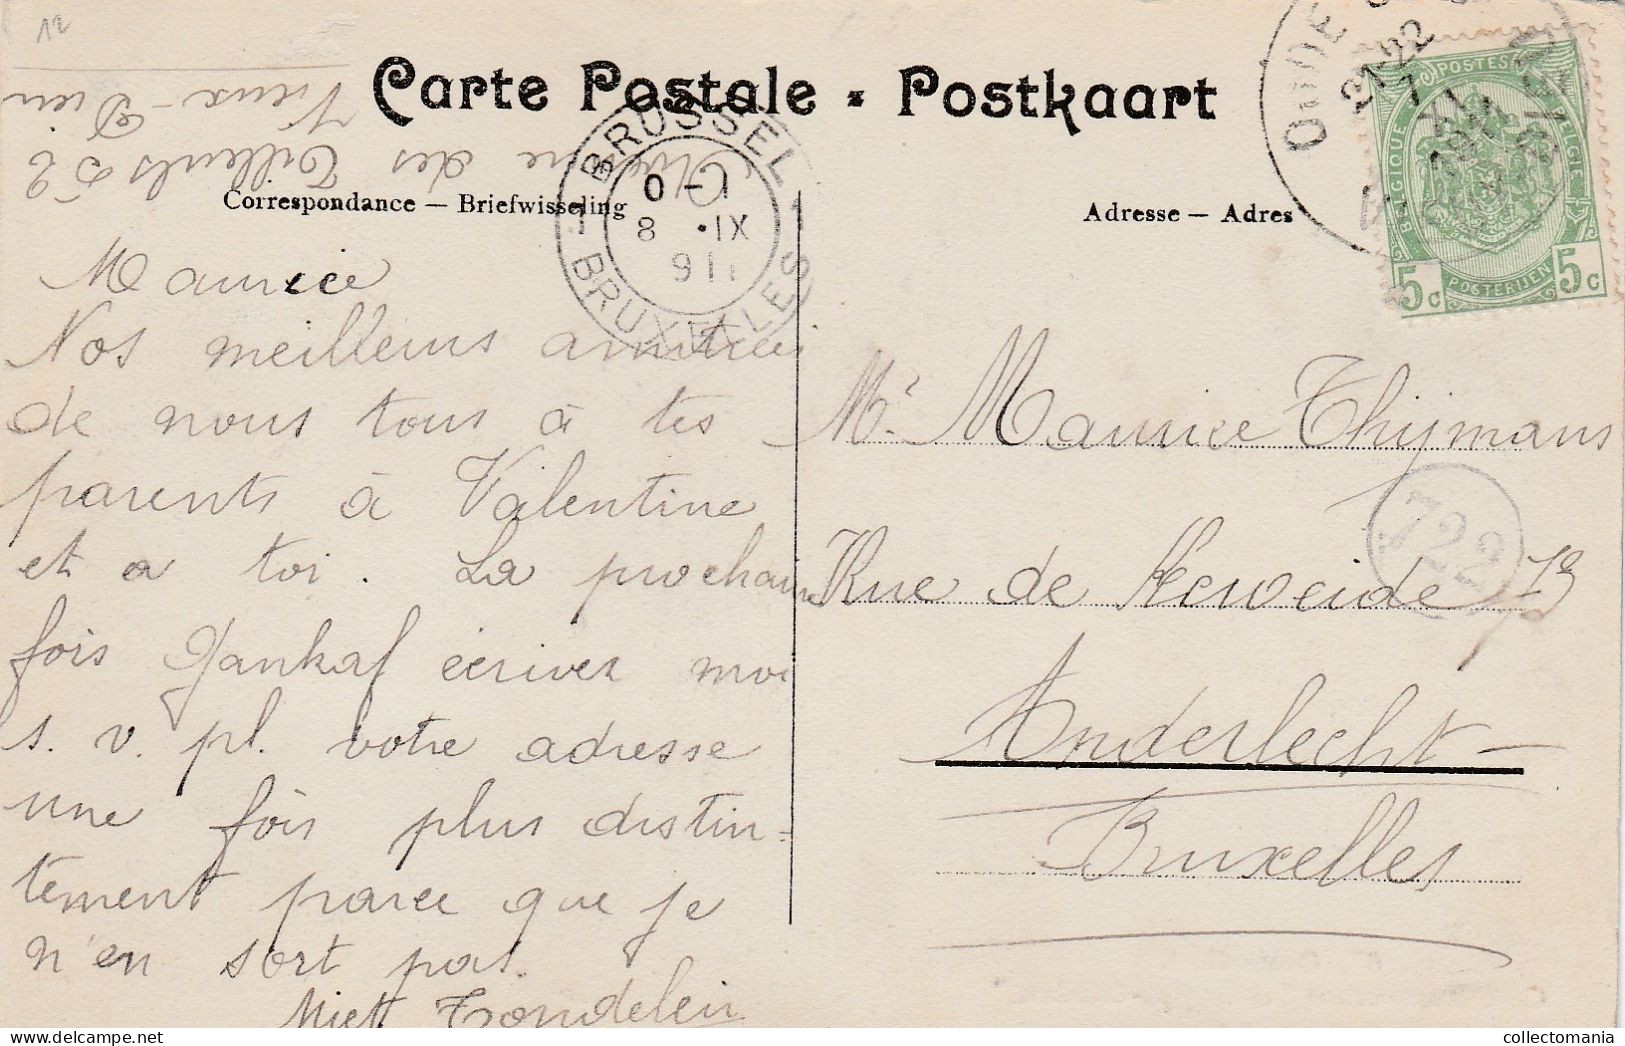 12
Carte Postale - Postkaart
Vieux-Dieu
Avenue des Tilleuls 52
Correspondance — Briefwisseling
Adresse — Adres
BRUSSEL
0 - 1
8 . IX
911
BRUXELLES
OUDE
21-22
7
POSTES
BELGIQUE
BELGIE
POSTERIJEN
5c
5c
Maurice
Nos meilleurs amitiées
de nous tous à tes
parents à Valentine
et a toi. La prochaine
fois Jankaf écrivez moi
s. v. pl. votre adresse
une fois plus distin=
tement parce que je
n'en sort pas.
Tondelein
Mr. Maurice Thijmans
Rue de 73
722
Anderlecht -
Bruxelles
collectomania